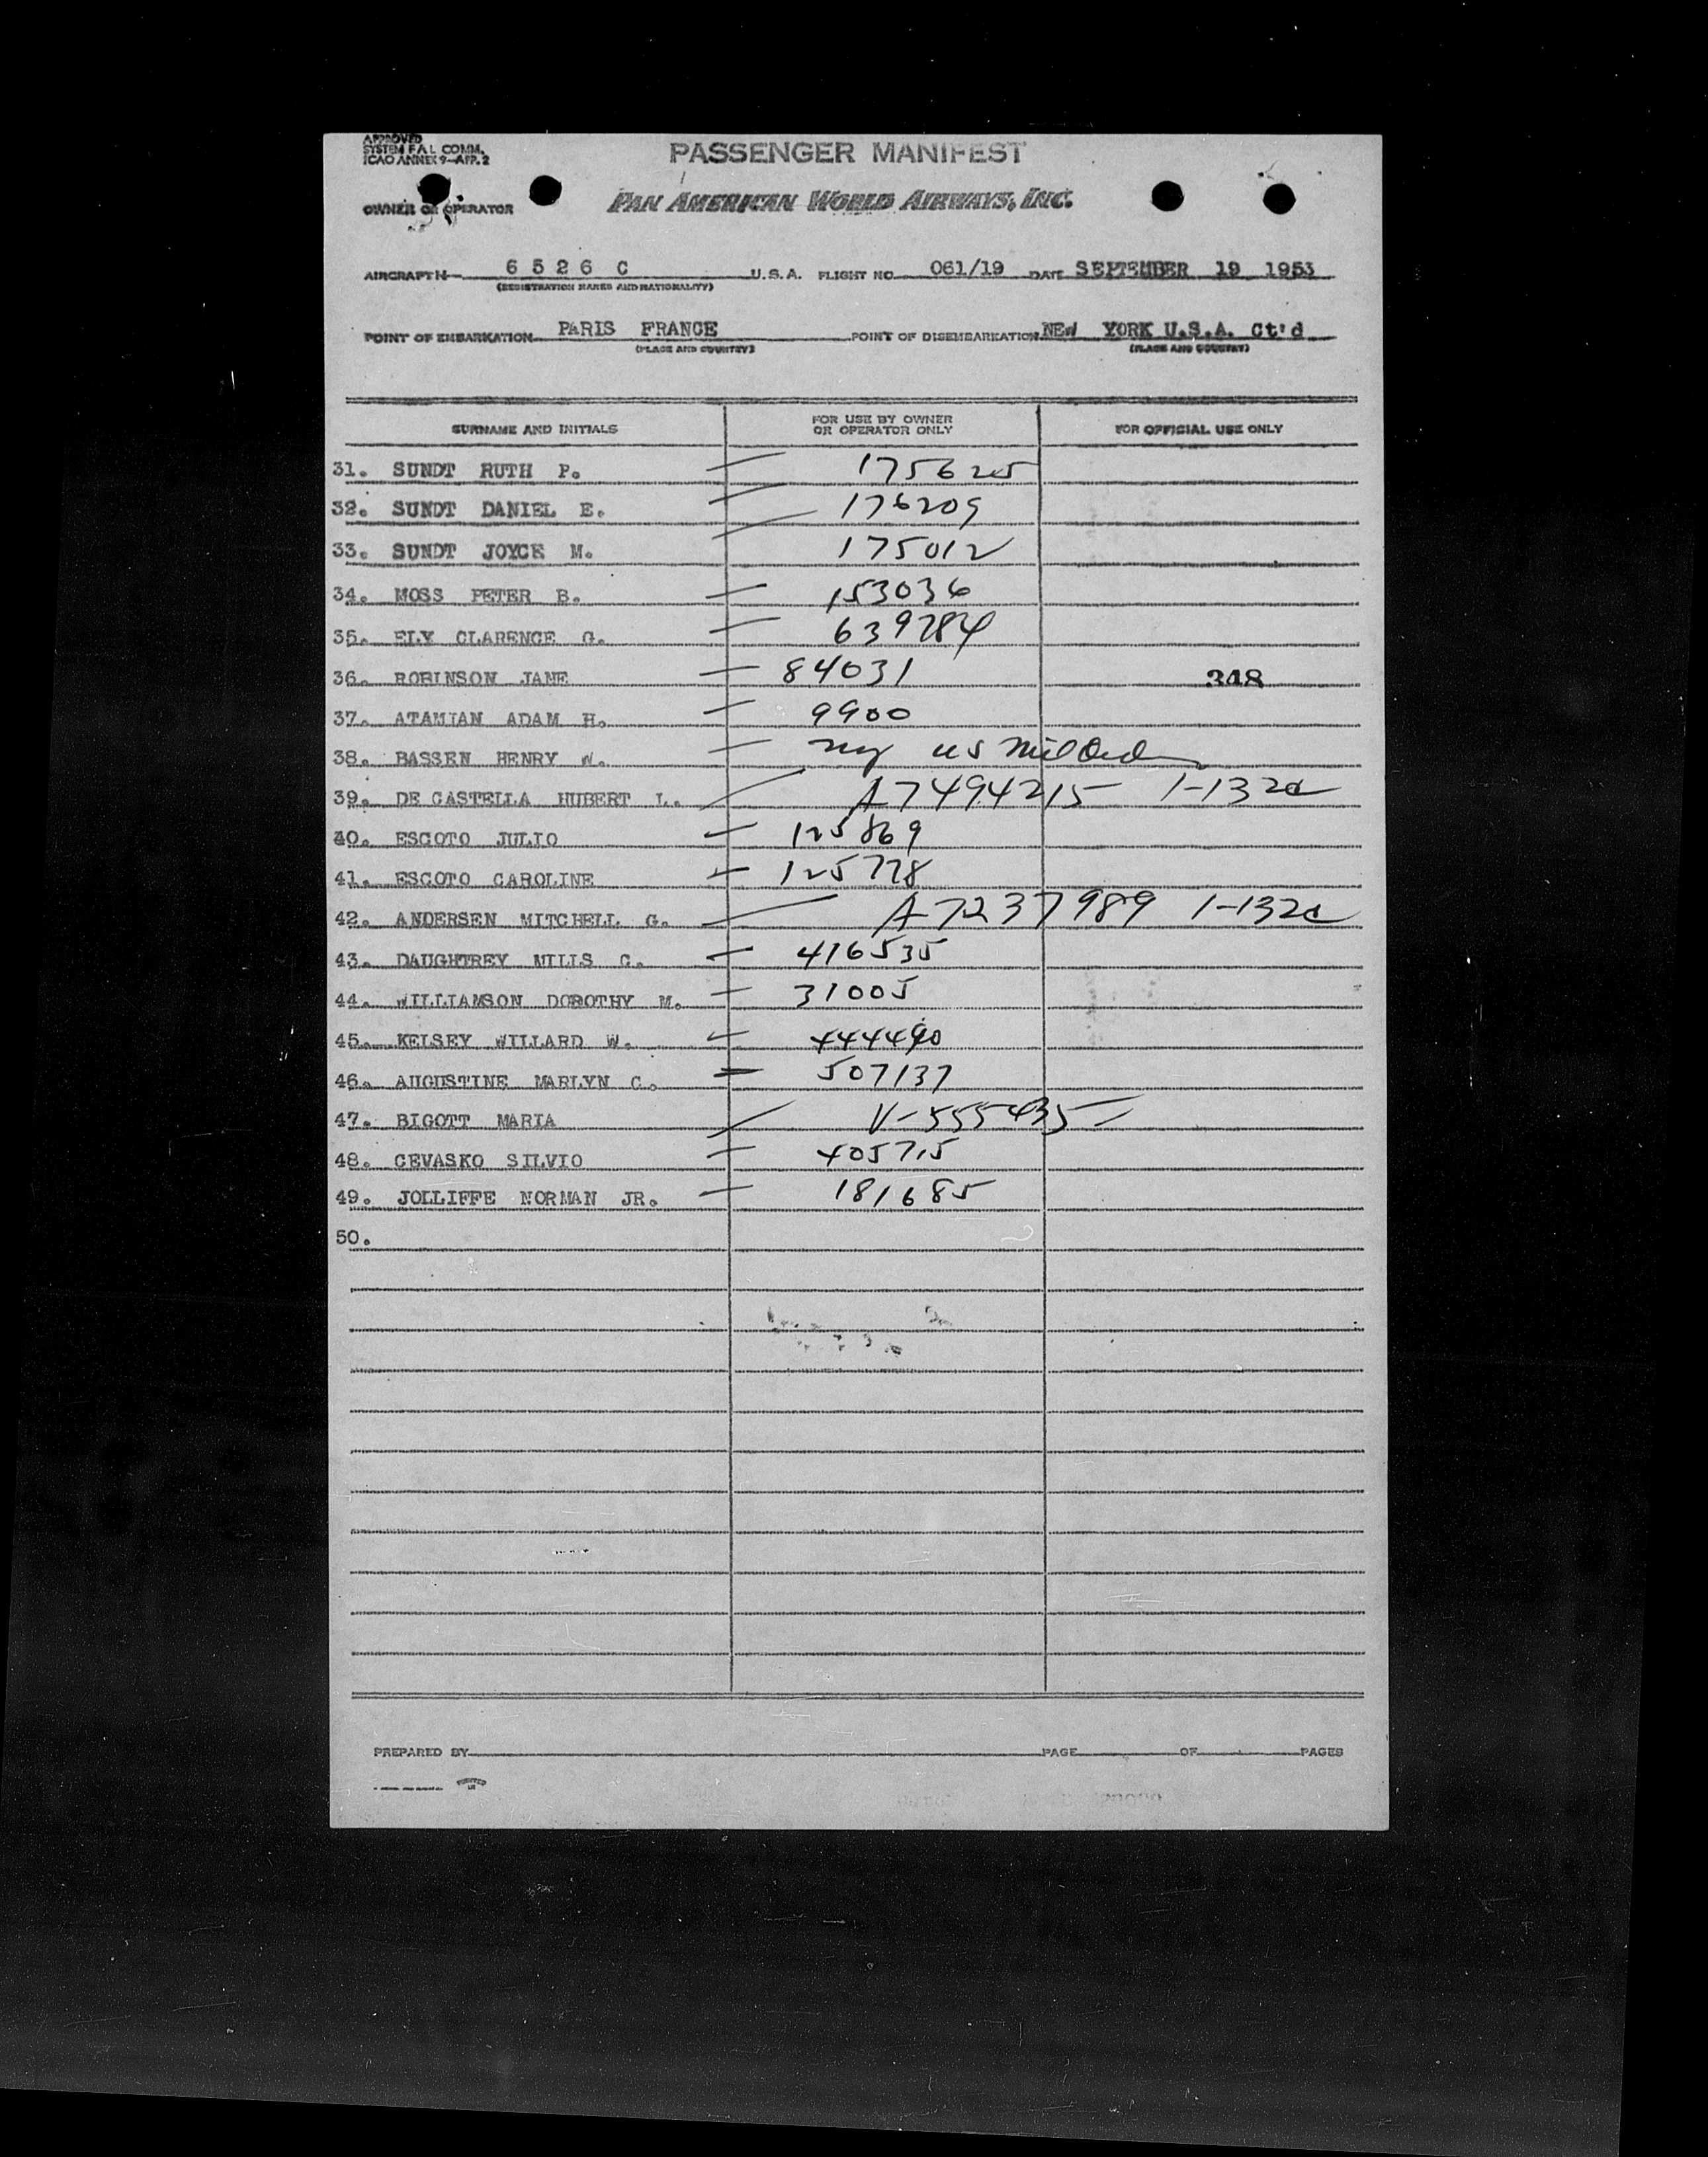 APPROVED
SYSTEM F.A.L. COMM.
ICAO ANNEX 9-APP. 2
PASSENGER MANIFEST
OWNER OR OPERATOR PAN AMERICAN WORLD AIRWAYS, INC.
AIRCRAFT N 6526 C U.S.A. FLIGHT NO. 061/19 DATE SEPTEMBER 19 1953
(REGISTRATION MARKS AND NATIONALITY)
POINT OF EMBARKATION PARIS FRANCE POINT OF DISEMBARKATION NEW YORK U.S.A. Ct'd
(PLACE AND COUNTRY) (PLACE AND COUNTRY)
SURNAME AND INITIALS FOR USE BY OWNER OR OPERATOR ONLY FOR OFFICIAL USE ONLY
31. SUNDT RUTH P. 175625
32. SUNDT DANIEL E. 176209
33. SUNDT JOYCE M. 175012
34. MOSS PETER B. 153036
35. ELY CLARENCE G. 639284
36. ROBINSON JANE 84031 348
37. ATAMIAN ADAM H. 9900
38. BASSEN HENRY W. US Mil
39. DE CASTELLA HUBERT L. A7494215 1-132a
40. ESCOTO JULIO 125869
41. ESCOTO CAROLINE 125778
42. ANDERSEN MITCHELL G. A-7237989 1-132c
43. DAUGHTREY MILLS C. 416535
44. WILLIAMSON DOROTHY M. 31005
45. KELSEY WILLARD W. 444490
46. AUGUSTINE MARLYN C. 507137
47. BIGOTT MARIA V-555435
48. CEVASKO SILVIO 405715
49. JOLLIFFE NORMAN JR. 181685
50.
PREPARED BY PAGE OF PAGES
PRINTED